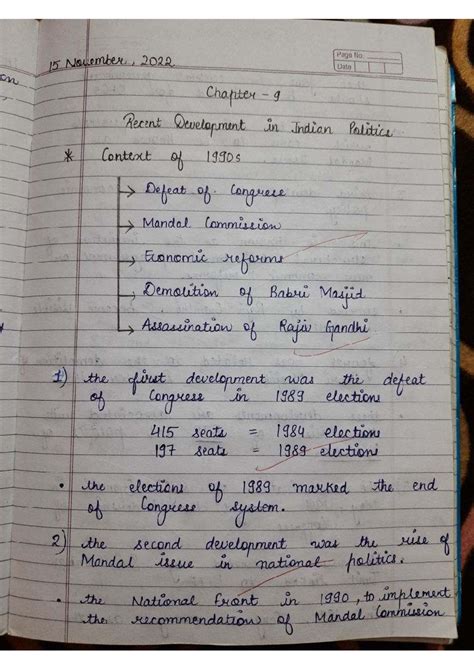 Page No.
Date
15 November, 2022
Chapter - 9
Recent Development in Indian Politics
* Context of 1990s
→ Defeat of Congress
→ Mandal Commission
→ Economic reforms
→ Demolition of Babri Masjid
→ Assassination of Rajiv Gandhi
1) the first development was the defeat
of Congress in 1989 elections
415 seats = 1984 elections
197 seats = 1989 elections
• the elections of 1989 marked the end
of Congress system.
2) the second development was the rise of
Mandal issue in national politics.
• the National Front in 1990, to implement
the recommendation of Mandal Commission